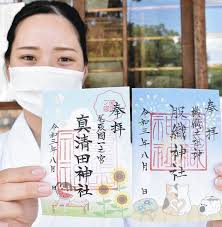 奉拝
尾張國一之宮
真清田神社
令和三年八月
日
奉拝
服織神社
令和三年八月
日